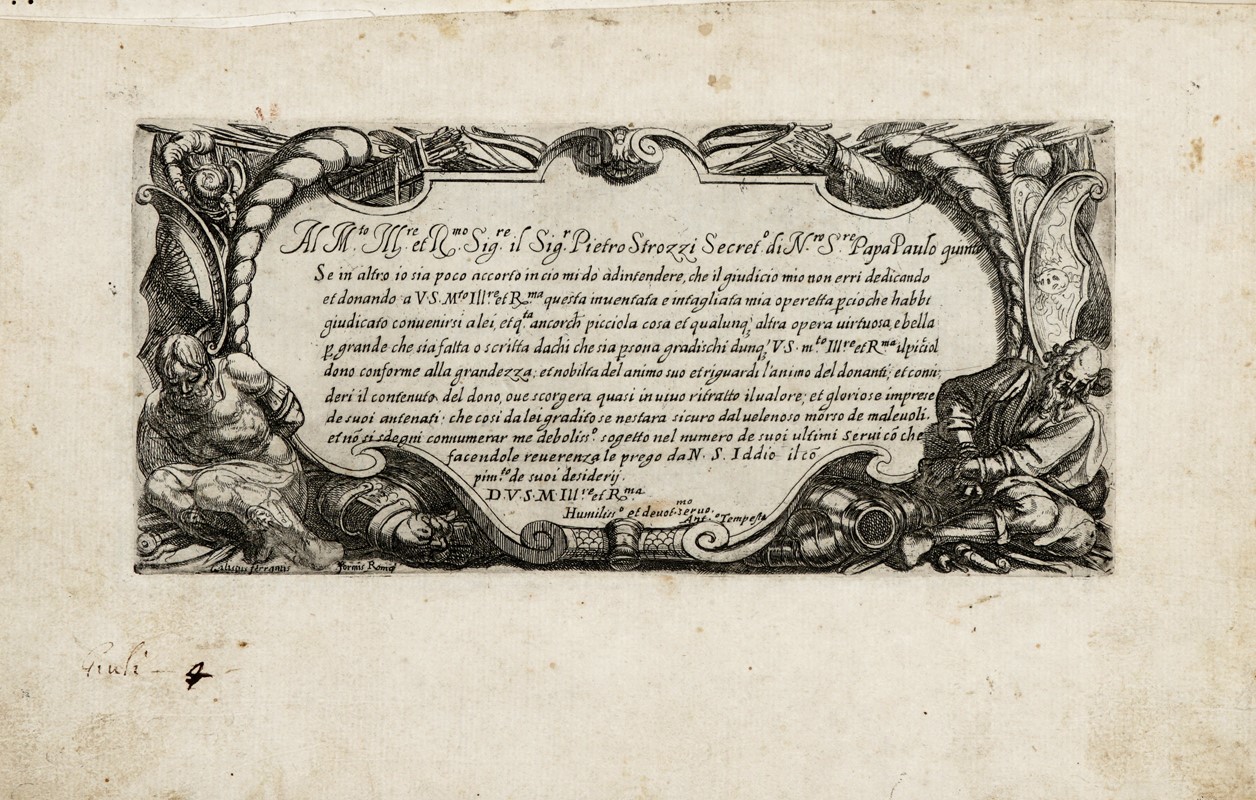 Al M.to Ill.re et R.mo Sig.re il Sig.r Pietro Strozzi Secret.o di N.ro S.re Papa Paulo quinto
Se in altro io sia poco accorto in cio mi dò adintendere, che il giudicio mio non erri dedicando
et donando a V.S. M.to Ill.re et R.ma questa inuentata e intagliata mia operetta ꝑcioche habbi
giudicato conuenirsi a lei, et q.ta ancorch̄ picciola cosa et qualunq; altra opera uirtuosa, e bella
ꝑ grande che sia fatta o scritta da chi che sia ꝑsona gradischi dunq; V.S. m.to Ill.re et R.ma il piciol
dono conforme alla grandezza, et nobiltà del animo suo et riguardi l'animo del donanti, et consi
deri il contenuto del dono, oue scorgera quasi in uiuo ritratto il ualore, et gloriose imprese
de suoi antenati: che cosi da lei gradito se nestara sicuro dal uelenoso morso de maleuoli.
et nō si sdegni connumerar me debolis.o sogetto nel numero de suoi ultimi serui cō che
facendole reuerenza le prego da N. S. Iddio il cō
pim.to de suoi desiderij.
D.V.S.M. Ill.re et R.ma
Humilis.o et deuot.mo seruo.
Ant.o Tempesta
Calistus ferrantis formis Romæ
Giuli - 4 -